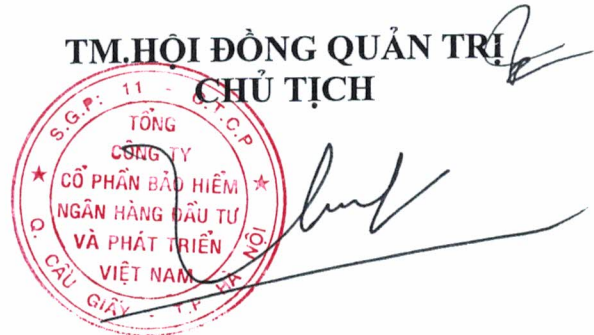 TM.HỘI ĐỒNG QUẢN TRỊ
CHỦ TỊCH
S.G.P: 11 - C.T.C.P
TỔNG
CÔNG TY
CỔ PHẦN BẢO HIỂM
NGÂN HÀNG ĐẦU TƯ
VÀ PHÁT TRIỂN
VIỆT NAM
Q. CẦU GIẤY - T.P HÀ NỘI